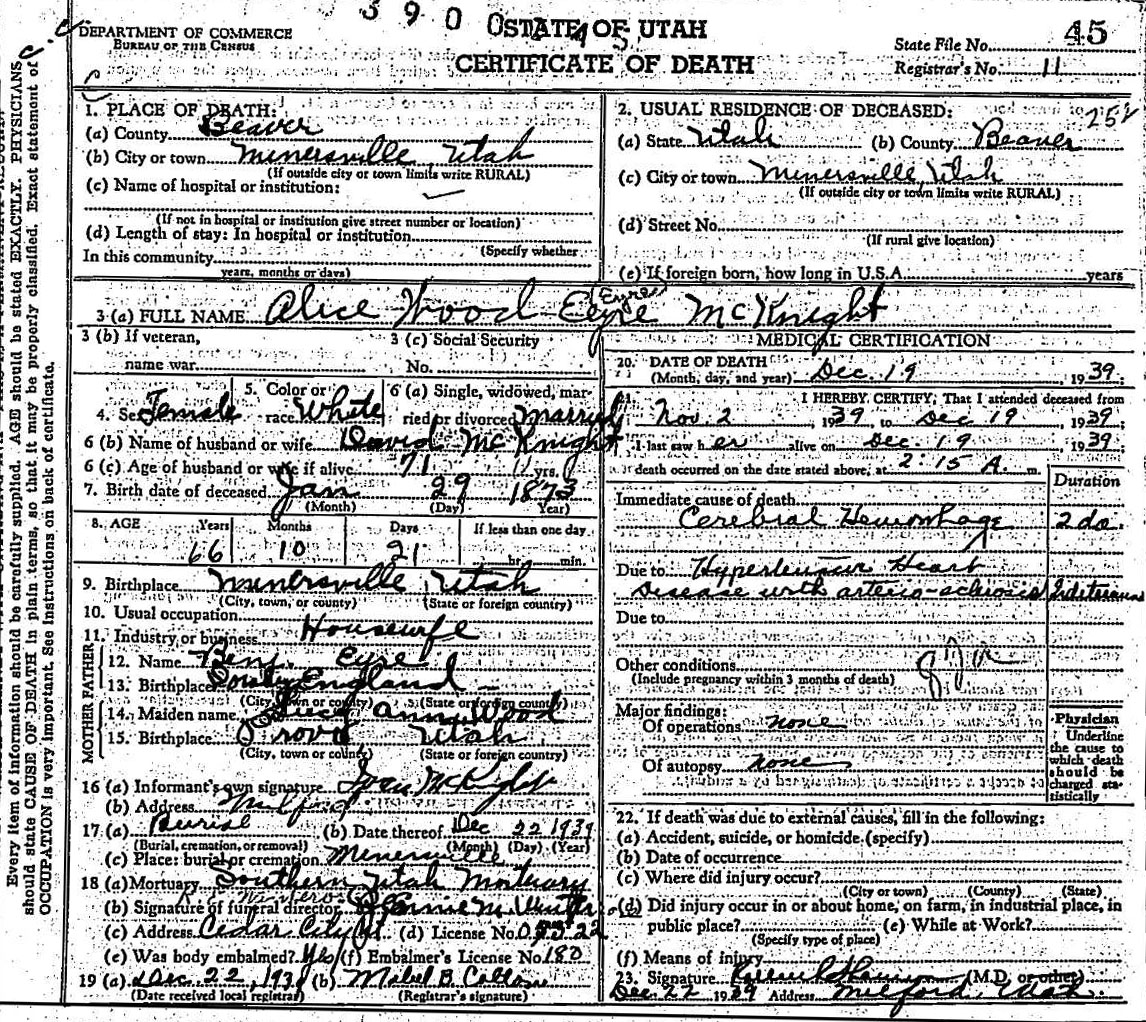 3 9 0 0 2 4 5
DEPARTMENT OF COMMERCE
BUREAU OF THE CENSUS
STATE OF UTAH
CERTIFICATE OF DEATH
State File No. 45
Registrar's No. 11
1. PLACE OF DEATH:
(a) County Beaver
(b) City or town Minersville, Utah
(If outside city or town limits write RURAL)
(c) Name of hospital or institution:
(If not in hospital or institution give street number or location)
(d) Length of stay: In hospital or institution
(Specify whether
In this community
years, months or days)
2. USUAL RESIDENCE OF DECEASED:
(a) State Utah (b) County Beaver
(c) City or town Minersville, Utah
(If outside city or town limits write RURAL)
(d) Street No.
(If rural give location)
(e) If foreign born, how long in U.S.A. years
3 (a) FULL NAME Alice Wood Eyre (Eyre) McKnight
3 (b) If veteran,
name war
3 (c) Social Security
No.
4. Sex Female
5. Color or
race White
6 (a) Single, widowed, mar-
ried or divorced Married
6 (b) Name of husband or wife David McKnight
6 (c) Age of husband or wife if alive 71 yrs.
7. Birth date of deceased Jan 29 1873
(Month) (Day) Year)
8. AGE Years Months Days If less than one day
66 10 21 hr. min.
9. Birthplace Minersville Utah
(City, town, or county) (State or foreign country)
10. Usual occupation
Housewife
11. Industry or business
FATHER
12. Name Benj. Eyre
13. Birthplace England
(City town or county) (State or foreign country)
MOTHER
14. Maiden name Lucy Ann Wood
15. Birthplace Provo Utah
(City, town or county) (State or foreign country)
16 (a) Informant's own signature McKnight
(b) Address Milford
17 (a) Burial (b) Date thereof Dec 22 1939
(Burial, cremation, or removal) (Month) (Day) (Year)
(c) Place: burial or cremation Minersville
18 (a) Mortuary Southern Utah Mortuary
(b) Signature of funeral director
(c) Address Cedar City (d) License No.
(e) Was body embalmed? Yes (f) Embalmer's License No. 180
19 (a) Dec 22, 193 (b) Mabel B.
(Date received local registrar) (Registrar's signature)
MEDICAL CERTIFICATION
20. DATE OF DEATH
(Month, day, and year) Dec. 19 1939.
21. I HEREBY CERTIFY, That I attended deceased from
Nov. 2, 1939, to Dec 19 1939;
I last saw her alive on Dec. 19 1939.
death occurred on the date stated above, at 2:15 A. m.
Duration
Immediate cause of death
Cerebral Hemorrhage 2 da.
Due to Hypertensive Heart
Disease with arterio-sclerosis
Due to
Other conditions
(Include pregnancy within 3 months of death)
Major findings:
Of operations none
Of autopsy none
Physician
Underline
the cause to
which death
should be
charged sta-
tistically
22. If death was due to external causes, fill in the following:
(a) Accident, suicide, or homicide (specify)
(b) Date of occurrence
(c) Where did injury occur?
(City or town) (County) (State)
(d) Did injury occur in or about home, on farm, in industrial place, in
public place? (e) While at Work?
(Specify type of place)
(f) Means of injury
23. Signature (M.D. or other)
Dec 22 1939 Address Milford, Utah
Every item of information should be carefully supplied. AGE should be stated EXACTLY. PHYSICIANS
should state CAUSE OF DEATH in plain terms, so that it may be properly classified. Exact statement of
OCCUPATION is very important. See instructions on back of certificate.